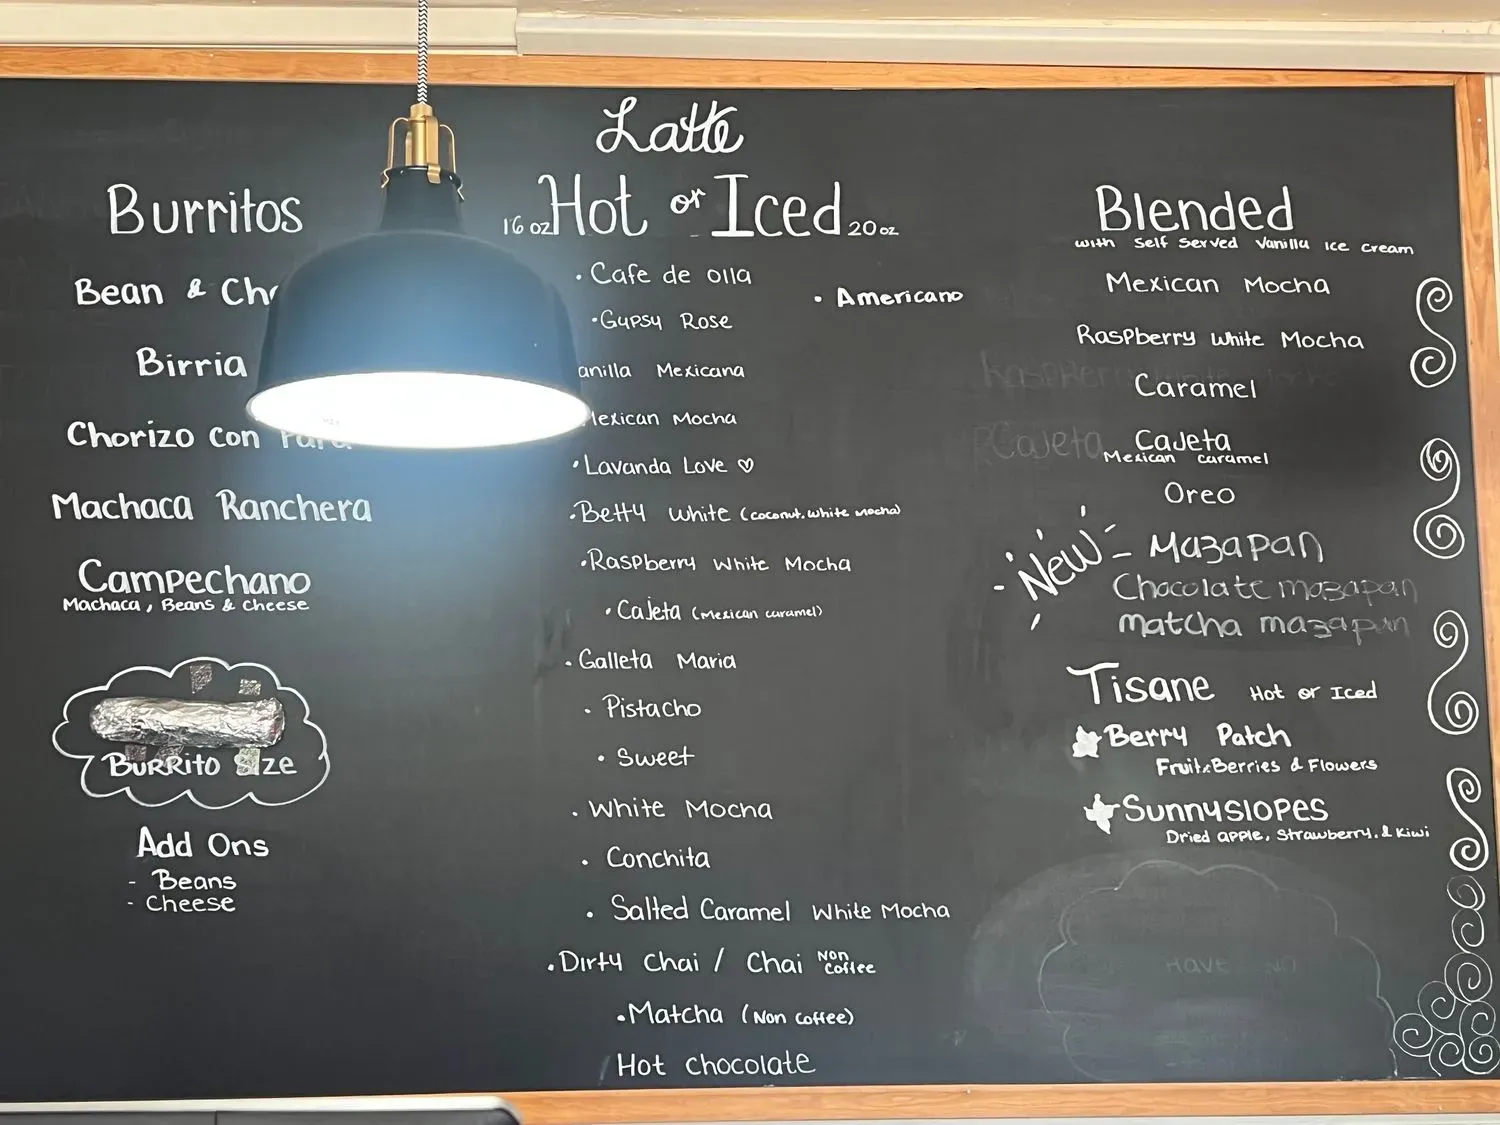 Burritos
Bean & Ch
Birria
Chorizo con
Machaca Ranchera
Campechano
Machaca, Beans & Cheese
Burrito Size
Add Ons
- Beans
- Cheese
Latte
16 oz Hot or Iced 20 oz
• Cafe de olla
• Americano
• Gypsy Rose
anilla Mexicana
Mexican Mocha
• Lavanda Love ♡
• Betty White (coconut, white mocha)
• Raspberry White Mocha
• Cajeta (Mexican caramel)
• Galleta Maria
• Pistacho
• Sweet
• White Mocha
• Conchita
• Salted Caramel White Mocha
• Dirty Chai / Chai Non Coffee
• Matcha (Non Coffee)
Hot chocolate
Blended
with Self Served Vanilla Ice Cream
Mexican Mocha
Raspberry White Mocha
Caramel
Cajeta
Mexican caramel
Oreo
New - Mazapan
Chocolate mazapan
matcha mazapan
Tisane Hot or Iced
Berry Patch
Fruit, Berries & Flowers
Sunnyslopes
Dried apple, Strawberry, & Kiwi
HAVE NO